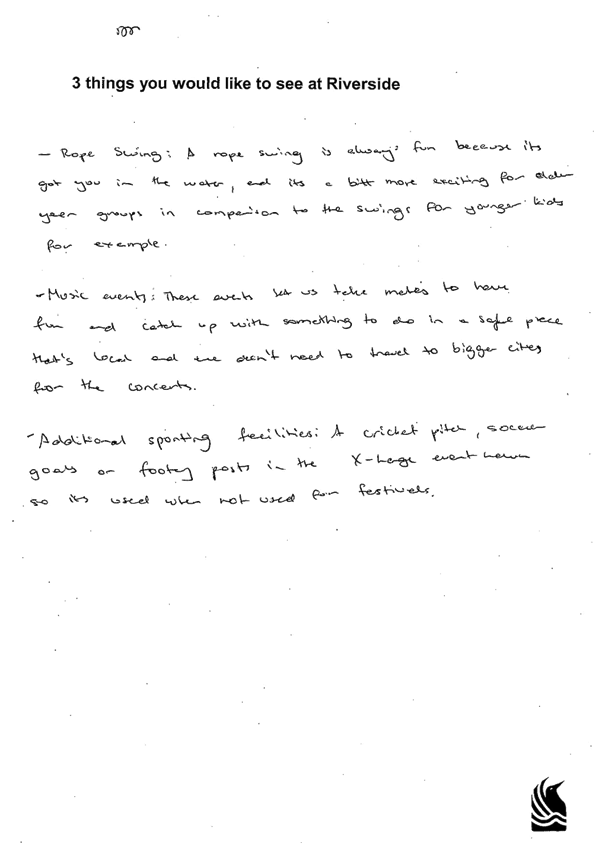 3 things you would like to see at Riverside
- Rope Swing: A rope swing is always fun because its
got you in the water, and its a bitt more exciting for older
year groups in comparison to the swings for younger kids
for example.
- Music events: These events let us take mates to have
fun and catch up with something to do in a safe place
that's local and we don't need to travel to bigger cities
for the concerts.
- Additional sporting facilities: A cricket pitch, soccer
goals or footy posts in the X-Large event lawn
so its used when not used for festivals.